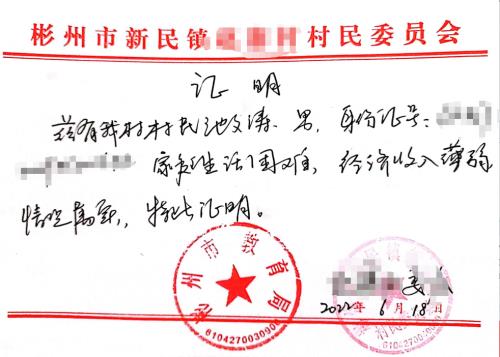 彬州市新民镇 村民委员会
证明
兹有我村村民池文涛、男,身份证号:
家庭生活困难,经济收入薄弱
情况属实,特此证明。
彬州市教育局
2022年6月18日
6104270030900
村民委员会